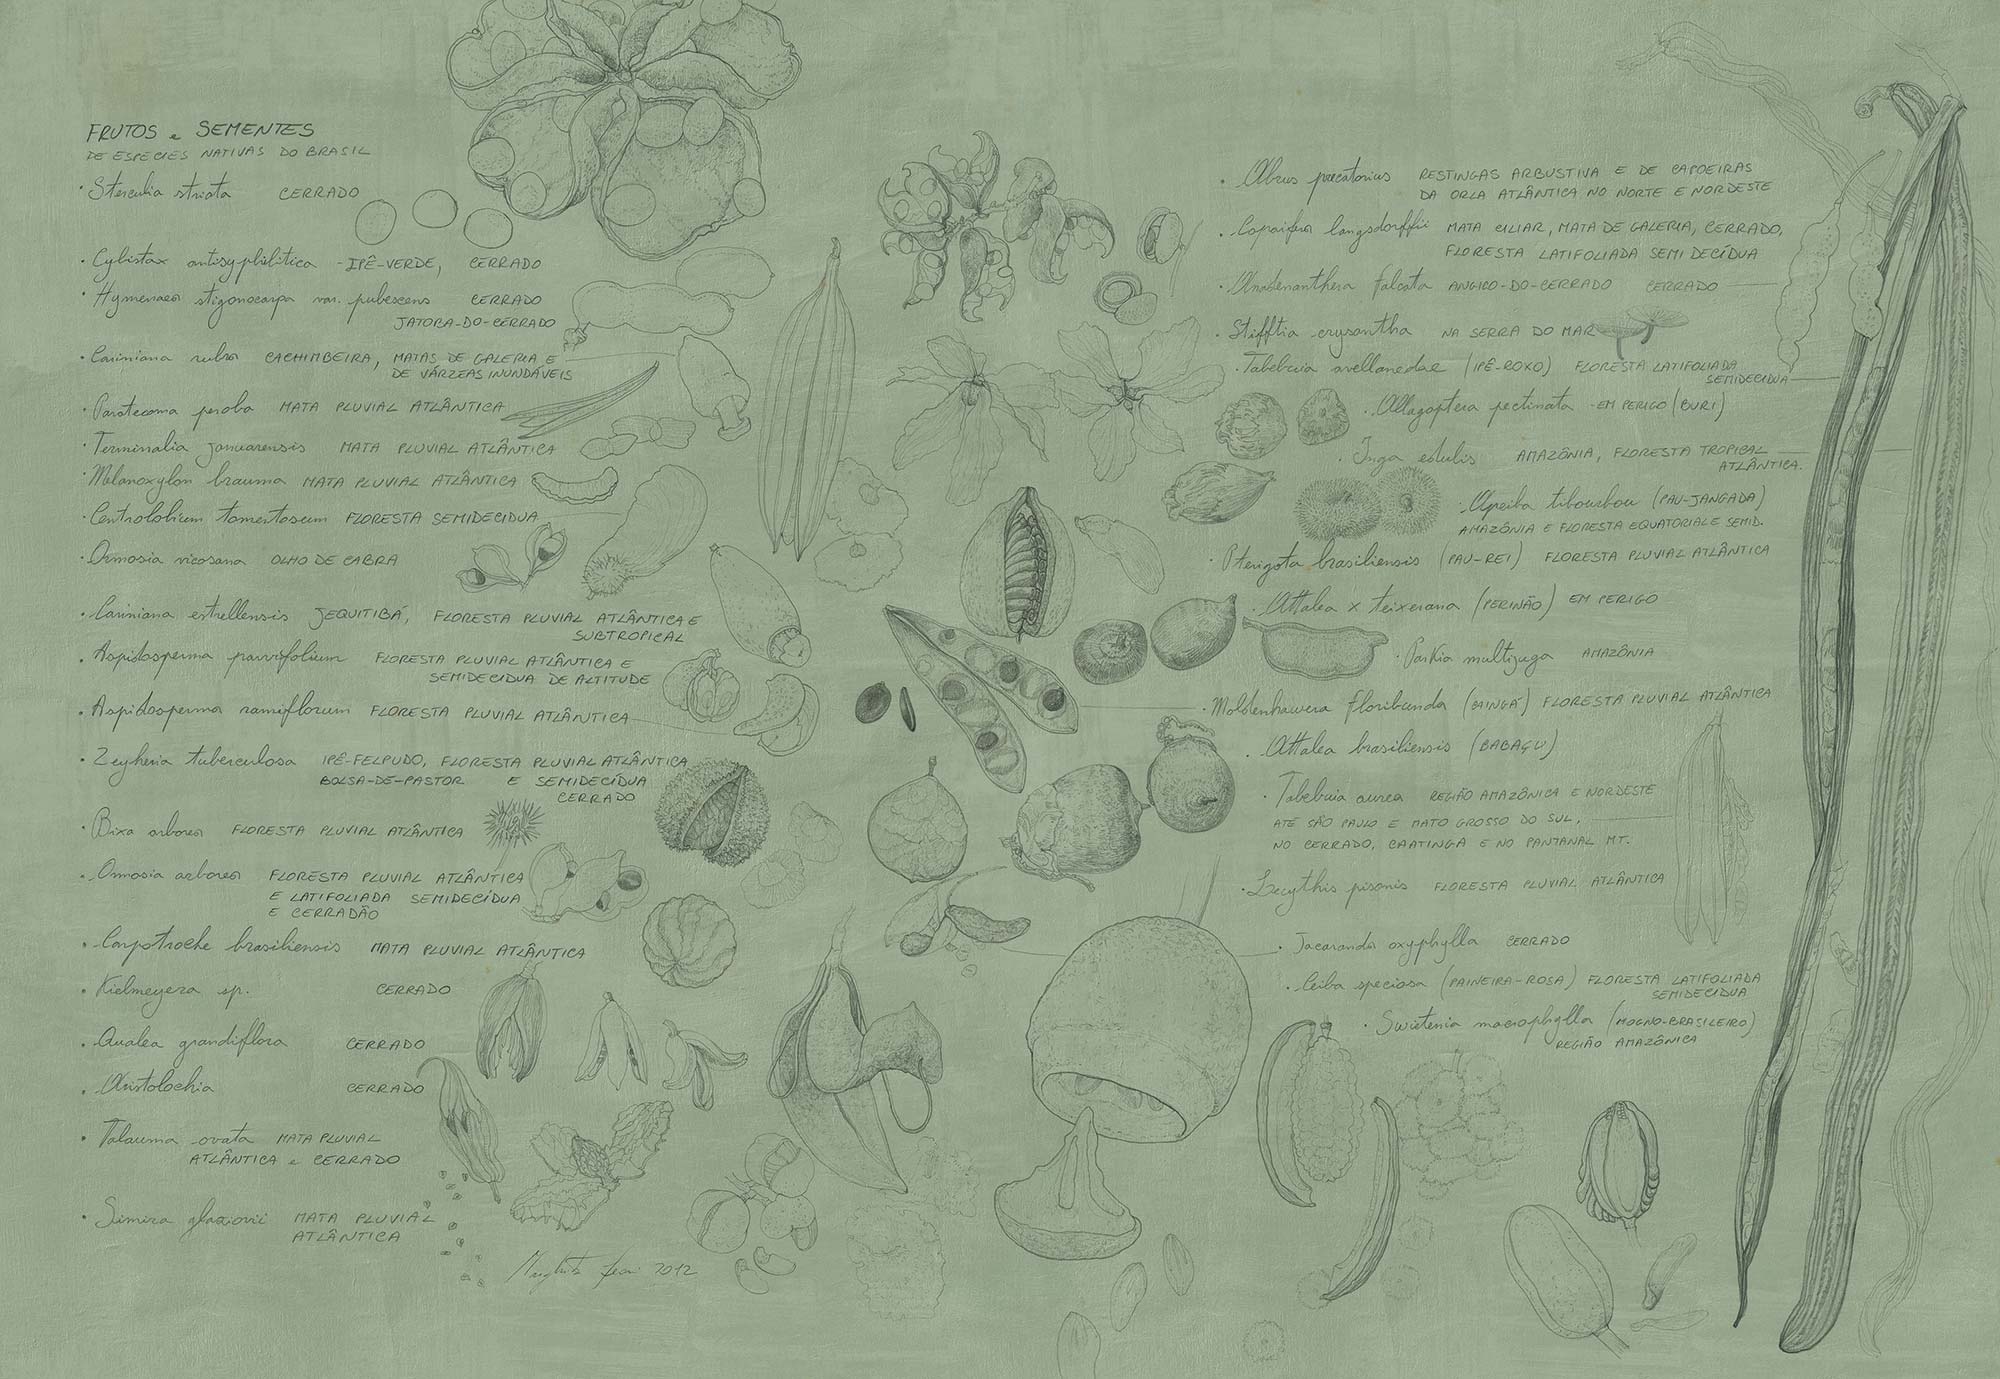 FRUTOS e SEMENTES
DE ESPÉCIES NATIVAS DO BRASIL
• Sterculia striata CERRADO
• Cybistax antisyphilitica - IPÊ-VERDE, CERRADO
• Hymenaea stigonocarpa var. pubescens CERRADO
JATOBA-DO-CERRADO
• Cariniana rubra CACHIMBEIRA, MATAS DE GALERIA E
DE VÁRZEAS INUNDÁVEIS
• Paratecoma peroba MATA PLUVIAL ATLÂNTICA
• Terminalia januarensis MATA PLUVIAL ATLÂNTICA
• Melanoxylon brauma MATA PLUVIAL ATLÂNTICA
• Centrolobium tomentosum FLORESTA SEMIDECIDUA
• Ormosia vicosana OLHO DE CABRA
• Cariniana estrellensis JEQUITIBÁ, FLORESTA PLUVIAL ATLÂNTICA E
SUBTROPICAL
• Aspidosperma parvifolium FLORESTA PLUVIAL ATLÂNTICA E
SEMIDECIDUA DE ALTITUDE
• Aspidosperma ramiflorum FLORESTA PLUVIAL ATLÂNTICA
• Zeyheria tuberculosa IPÊ-FELPUDO, FLORESTA PLUVIAL ATLÂNTICA
BOLSA-DE-PASTOR E SEMIDECÍDUA
CERRADO
• Bixa arborea FLORESTA PLUVIAL ATLÂNTICA
• Ormosia arborea FLORESTA PLUVIAL ATLÂNTICA
E LATIFOLIADA SEMIDECÍDUA
E CERRADÃO
• Carpotroche brasiliensis MATA PLUVIAL ATLÂNTICA
• Kielmeyera sp. CERRADO
• Qualea grandiflora CERRADO
• Aristolochia CERRADO
• Talauma ovata MATA PLUVIAL
ATLÂNTICA e CERRADO
• Simira glaziovii MATA PLUVIAL
ATLÂNTICA
2012
• Abrus precatorius RESTINGAS ARBUSTIVA E DE CAPOEIRAS
DA ORLA ATLÂNTICA NO NORTE E NORDESTE
• Copaifera langsdorffii MATA CILIAR, MATA DE GALERIA, CERRADO,
FLORESTA LATIFOLIADA SEMIDECÍDUA
• Anadenanthera falcata ANGICO-DO-CERRADO CERRADO
• Stifftia crysantha NA SERRA DO MAR
• Tabebuia avellanedae (IPÊ-ROXO) FLORESTA LATIFOLIADA
SEMIDECIDUA
• Allagoptera pectinata - EM PERIGO (BURI)
• Inga edulis AMAZÔNIA, FLORESTA TROPICAL
ATLÂNTICA.
• Apeiba tibourbou (PAU-JANGADA)
AMAZÔNIA E FLORESTA EQUATORIAL E SEMID.
• Pterigota brasiliensis (PAU-REI) FLORESTA PLUVIAL ATLÂNTICA
• Attalea x teixerana (PERINÃO) EM PERIGO
• Parkia multijuga AMAZÔNIA
• Moldenhawera floribunda FLORESTA PLUVIAL ATLÂNTICA
• Attalea brasiliensis (BABAÇU)
• Tabebuia aurea REGIÃO AMAZÔNICA E NORDESTE
ATÉ SÃO PAULO E MATO GROSSO DO SUL,
NO CERRADO, CAATINGA E NO PANTANAL MT.
• Lecythis pisonis FLORESTA PLUVIAL ATLÂNTICA
• Jacaranda oxyphylla CERRADO
• Ceiba speciosa (PAINEIRA-ROSA) FLORESTA LATIFOLIADA
SEMIDECIDUA
• Swietenia macrophylla (MOGNO-BRASILEIRO)
REGIÃO AMAZÔNICA